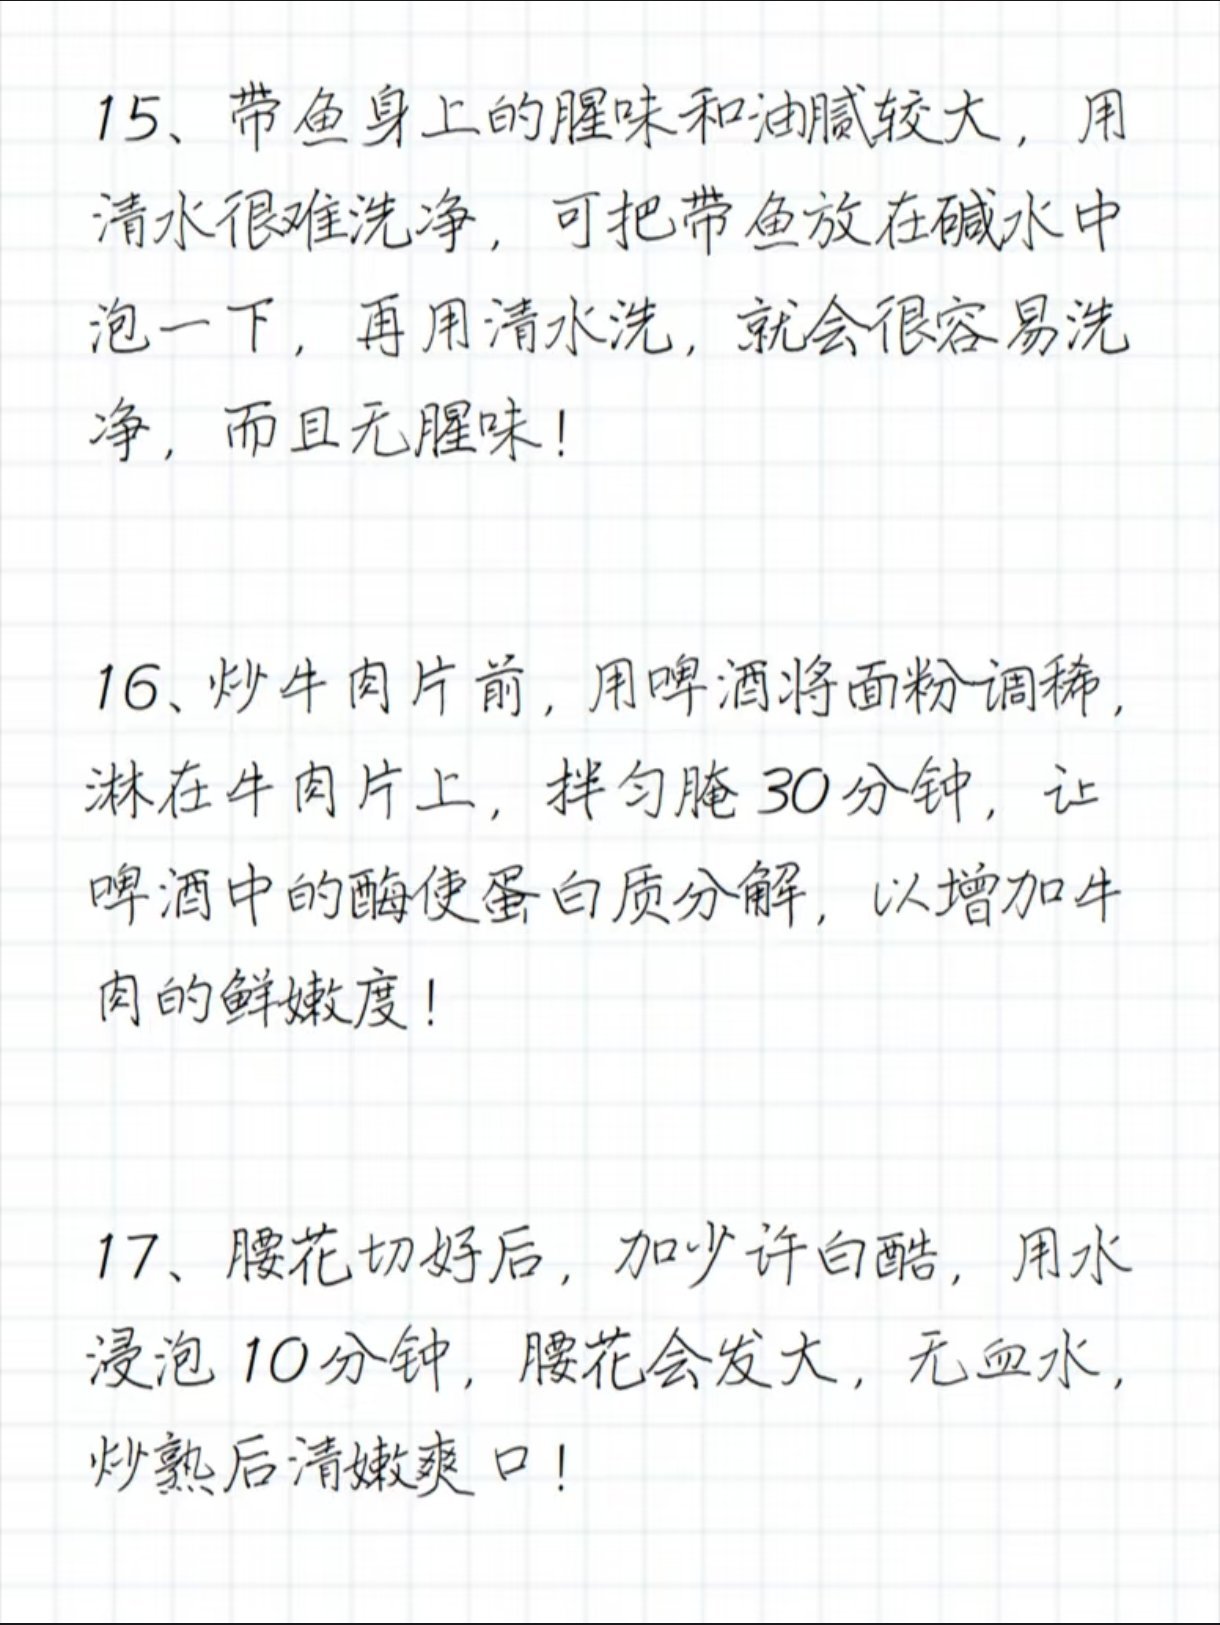 15、带鱼身上的腥味和油腻较大，用
清水很难洗净，可把带鱼放在碱水中
泡一下，再用清水洗，就会很容易洗
净，而且无腥味！
16、炒牛肉片前，用啤酒将面粉调稀，
淋在牛肉片上，拌匀腌30分钟，让
啤酒中的酶使蛋白质分解，以增加牛
肉的鲜嫩度！
17、腰花切好后，加少许白酷，用水
浸泡10分钟，腰花会发大，无血水，
炒熟后清嫩爽口！